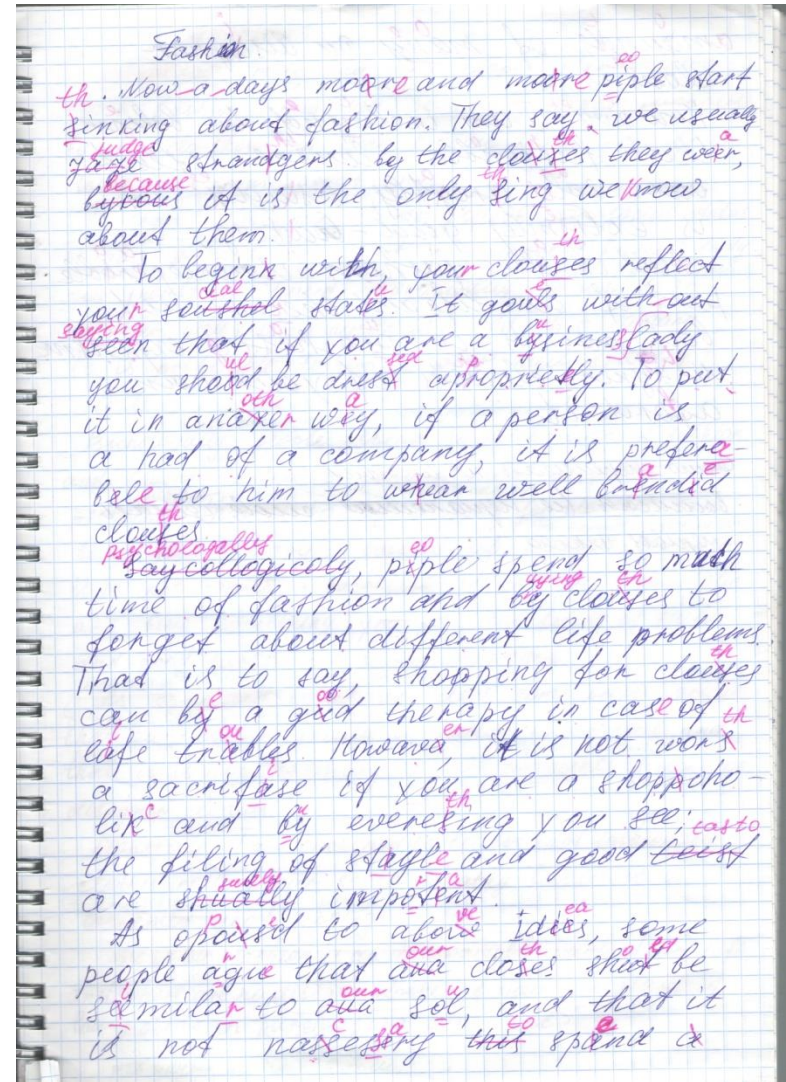 Fashion
eo
th. Now-a-days moore and moore piple start
sinking about fashion. They say we usually
judge th a
jage strandgers by the clouses they weer,
because th
bycous it is the only sing we know
about them.
th
To beginn with, your clouses reflect
ial u
your soushel states. It gouls without
saying u
seen that if you are a bysiness lady
ul ssed p
you shood be drest aproprietly. To put
oth a
it in anaxer wey, if a person is
a had of a company, it is prefera-
a e
bele to him to whear well brendid
th
clouses
psychologally eo
Saycollogicoly, piple spend so much
uying th
time of fashion and by clouses to
forget about different life problems.
th
That is to say, shopping for clouses
e oo
can by a gud therapy in case of
i ou er th
lafe trables. Howava, it is not wors
i
a sacrifase if you are a shoppoho-
c u th
lik and by everesing you see;
tasto
the filing of stagle and good teist
surely r a
are shually impotent.
p ve ea
As opousd to above idies, some
r our th o ld
people ague that aua closes shut be
i our u
semilar to aua sol, and that it
c a to e
is not nassessry this spand a